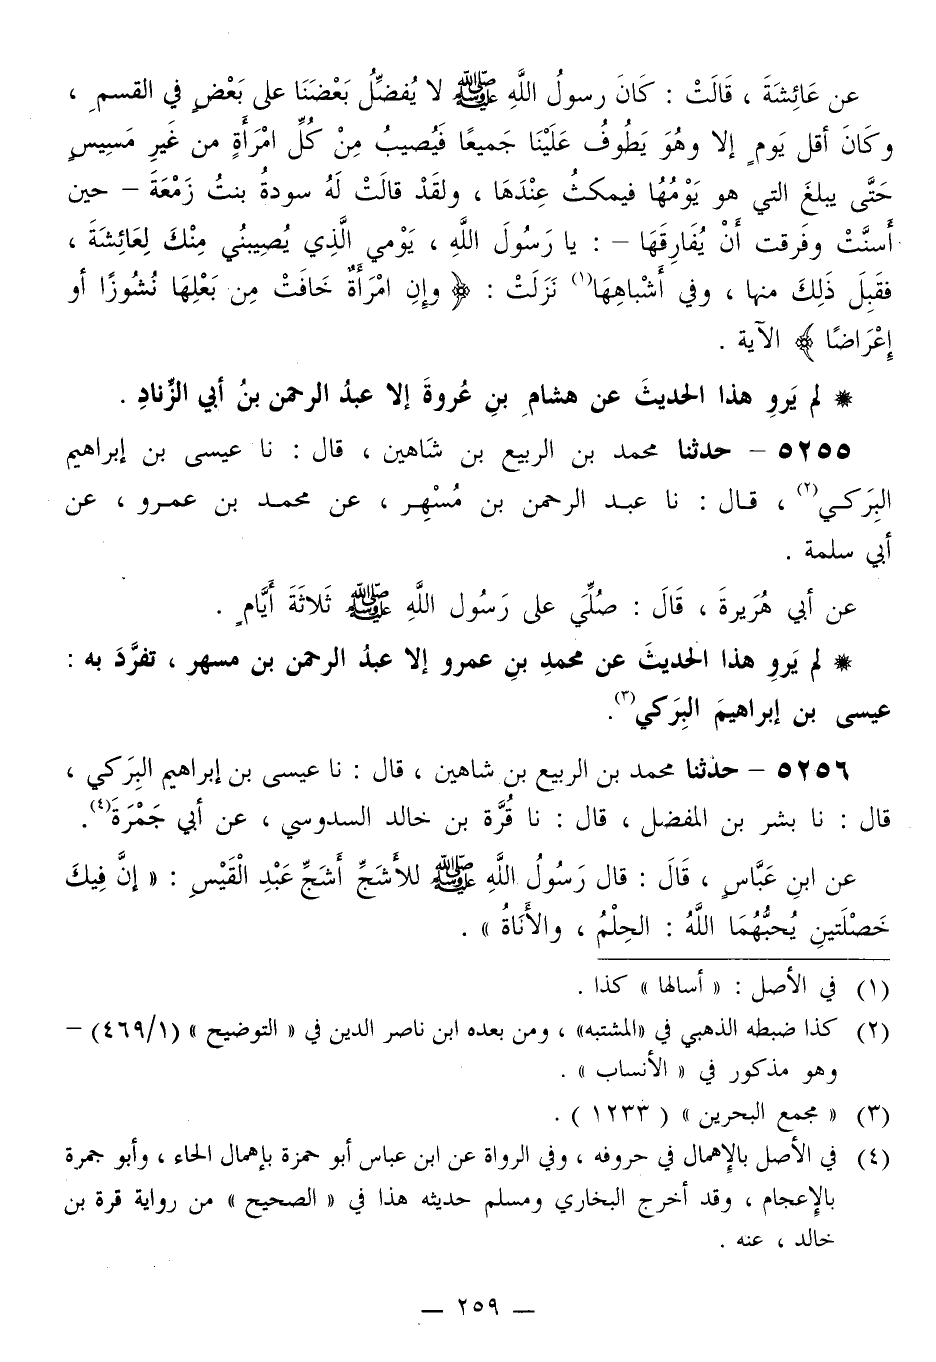 عن عَائِشَةَ ، قَالَتْ : كَانَ رسولُ اللَّهِ ﷺ لا يُفضِّلُ بَعْضَنَا على بَعْضٍ في القسمِ ،
وكَانَ أقل يَومٍ إلا وهُوَ يَطُوفُ عَلَيْنَا جميعًا فَيُصيبُ مِنْ كُلِّ امْرأَةٍ من غَيرِ مَسِيسٍ
حَتَّى يبلغَ التي هو يَوْمُهَا فيمكثُ عِنْدَهَا ، ولقَدْ قالَتْ لَهُ سودةُ بنتُ زَمْعَةَ – حين
أَسنَّتْ وفَرقت أَنْ يُفَارِقَهَا – : يا رَسُولَ اللَّهِ ، يَوْمي الَّذِي يُصِيبُني مِنْكَ لِعَائِشَةَ ،
فقَبِلَ ذَلِكَ منها ، وفي أَشْبَاهِهَا(١) نَزَلَتْ : ﴿ وإنِ امْرَأَةٌ خَافَتْ مِن بَعْلِهَا نُشُوزًا أو
إعْرَاضًا ﴾ الآية .
* لم يَروِ هذا الحديثَ عن هشامِ بنِ عُروةَ إلا عبدُ الرحمن بنُ أبي الزِّنادِ .
٥٢٥٥ – حدثنا محمد بن الربيع بن شَاهين ، قال : نا عيسى بن إبراهيم
البِرَكي(٢) ، قال : نا عبد الرحمن بن مُسْهِر ، عن محمد بن عمرو ، عن
أبي سلمة .
عن أبي هُرَيرةَ ، قَالَ : صُلِّيَ على رَسُول اللَّهِ ﷺ ثَلاثَةَ أَيَّامٍ .
* لم يَروِ هذا الحديثَ عن محمدِ بنِ عمرو إلا عبدُ الرحمن بن مسهر ، تفرَّدَ به :
عيسى بن إبراهيمَ البِرَكي(٣).
٥٢٥٦ – حدثنا محمد بن الربيع بن شاهين ، قال : نا عيسى بن إبراهيم البِرَكي ،
قال : نا بشر بن المفضل ، قال : نا قُرَّة بن خالد السدوسي ، عن أبي جَمْرَةَ(٤).
عن ابنِ عَبَّاسٍ ، قَالَ : قال رَسُولُ اللَّهِ ﷺ للأشَجِّ أَشَجِّ عَبْدِ الْقَيْسِ : « إنَّ فِيكَ
خَصْلَتينِ يُحبُّهُمَا اللَّهُ : الحِلْمُ ، والأَنَاةُ » .
(١) في الأصل : « أسالها » كذا .
(٢) كذا ضبطه الذهبي في «المشتبه» ، ومن بعده ابن ناصر الدين في « التوضيح » (٤٦٩/١) –
وهو مذكور في « الأنساب » .
(٣) « مجمع البحرين » ( ١٢٣٣ ) .
(٤) في الأصل بالإهمال في حروفه ، وفي الرواة عن ابن عباس أبو حمزة بإهمال الحاء ، وأبو جمرة
بالإعجام ، وقد أخرج البخاري ومسلم حديثه هذا في « الصحيح » من رواية قرة بن
خالد ، عنه .
– ٢٥٩ –